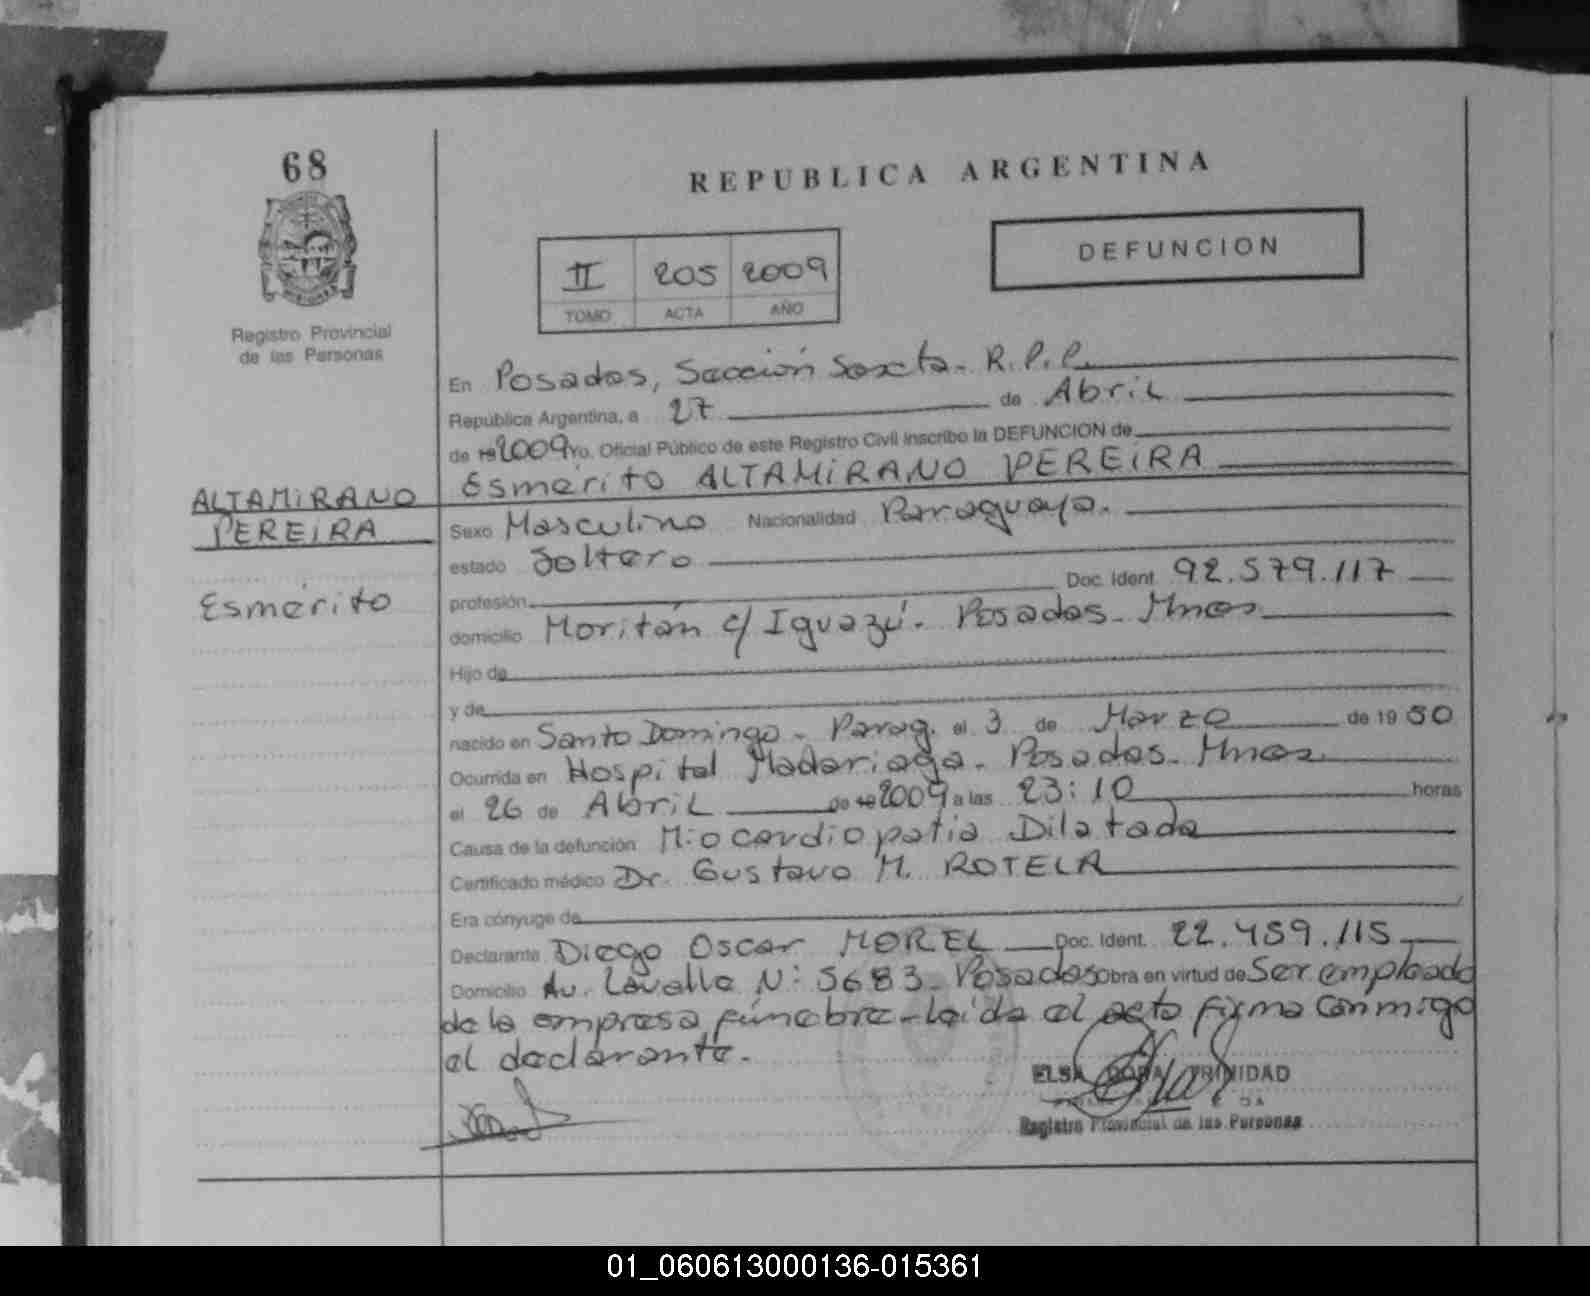 68
REPUBLICA ARGENTINA
DEFUNCION
II 205 2009
TOMO ACTA AÑO
Registro Provincial
de las Personas
En Posadas, Sección Sexta. R.P.P.
República Argentina, a 27 de Abril
de 19 2009 Yo. Oficial Público de este Registro Civil inscribo la DEFUNCION de
Esmérito ALTAMIRANO PEREIRA
ALTAMIRANO
PEREIRA
Esmérito
Sexo Masculino Nacionalidad Paraguaya.
estado Soltero
profesión Doc. Ident. 92.579.117
domicilio Moritán c/ Iguazú. Posadas. Mnes
Hijo de
y de
nacido en Santo Domingo - Parag. el 3 de Marzo de 19 50
Ocurrida en Hospital Madariaga. Posadas. Mnes.
el 26 de Abril de 19 2009 a las 23:10 horas
Causa de la defunción Miocardiopatia Dilatada
Certificado médico Dr. Gustavo M. ROTELA
Era cónyuge de
Declarante Diego Oscar MOREL Doc. Ident. 22.459.115
Domicilio Av. Lavalle N: 5683. Posadas Obra en virtud de Ser empleado
de la empresa fúnebre - leída el acta firma conmigo
el declarante.
ELSA DORA TRINIDAD
Registro Provincial de las Personas
01_060613000136-015361